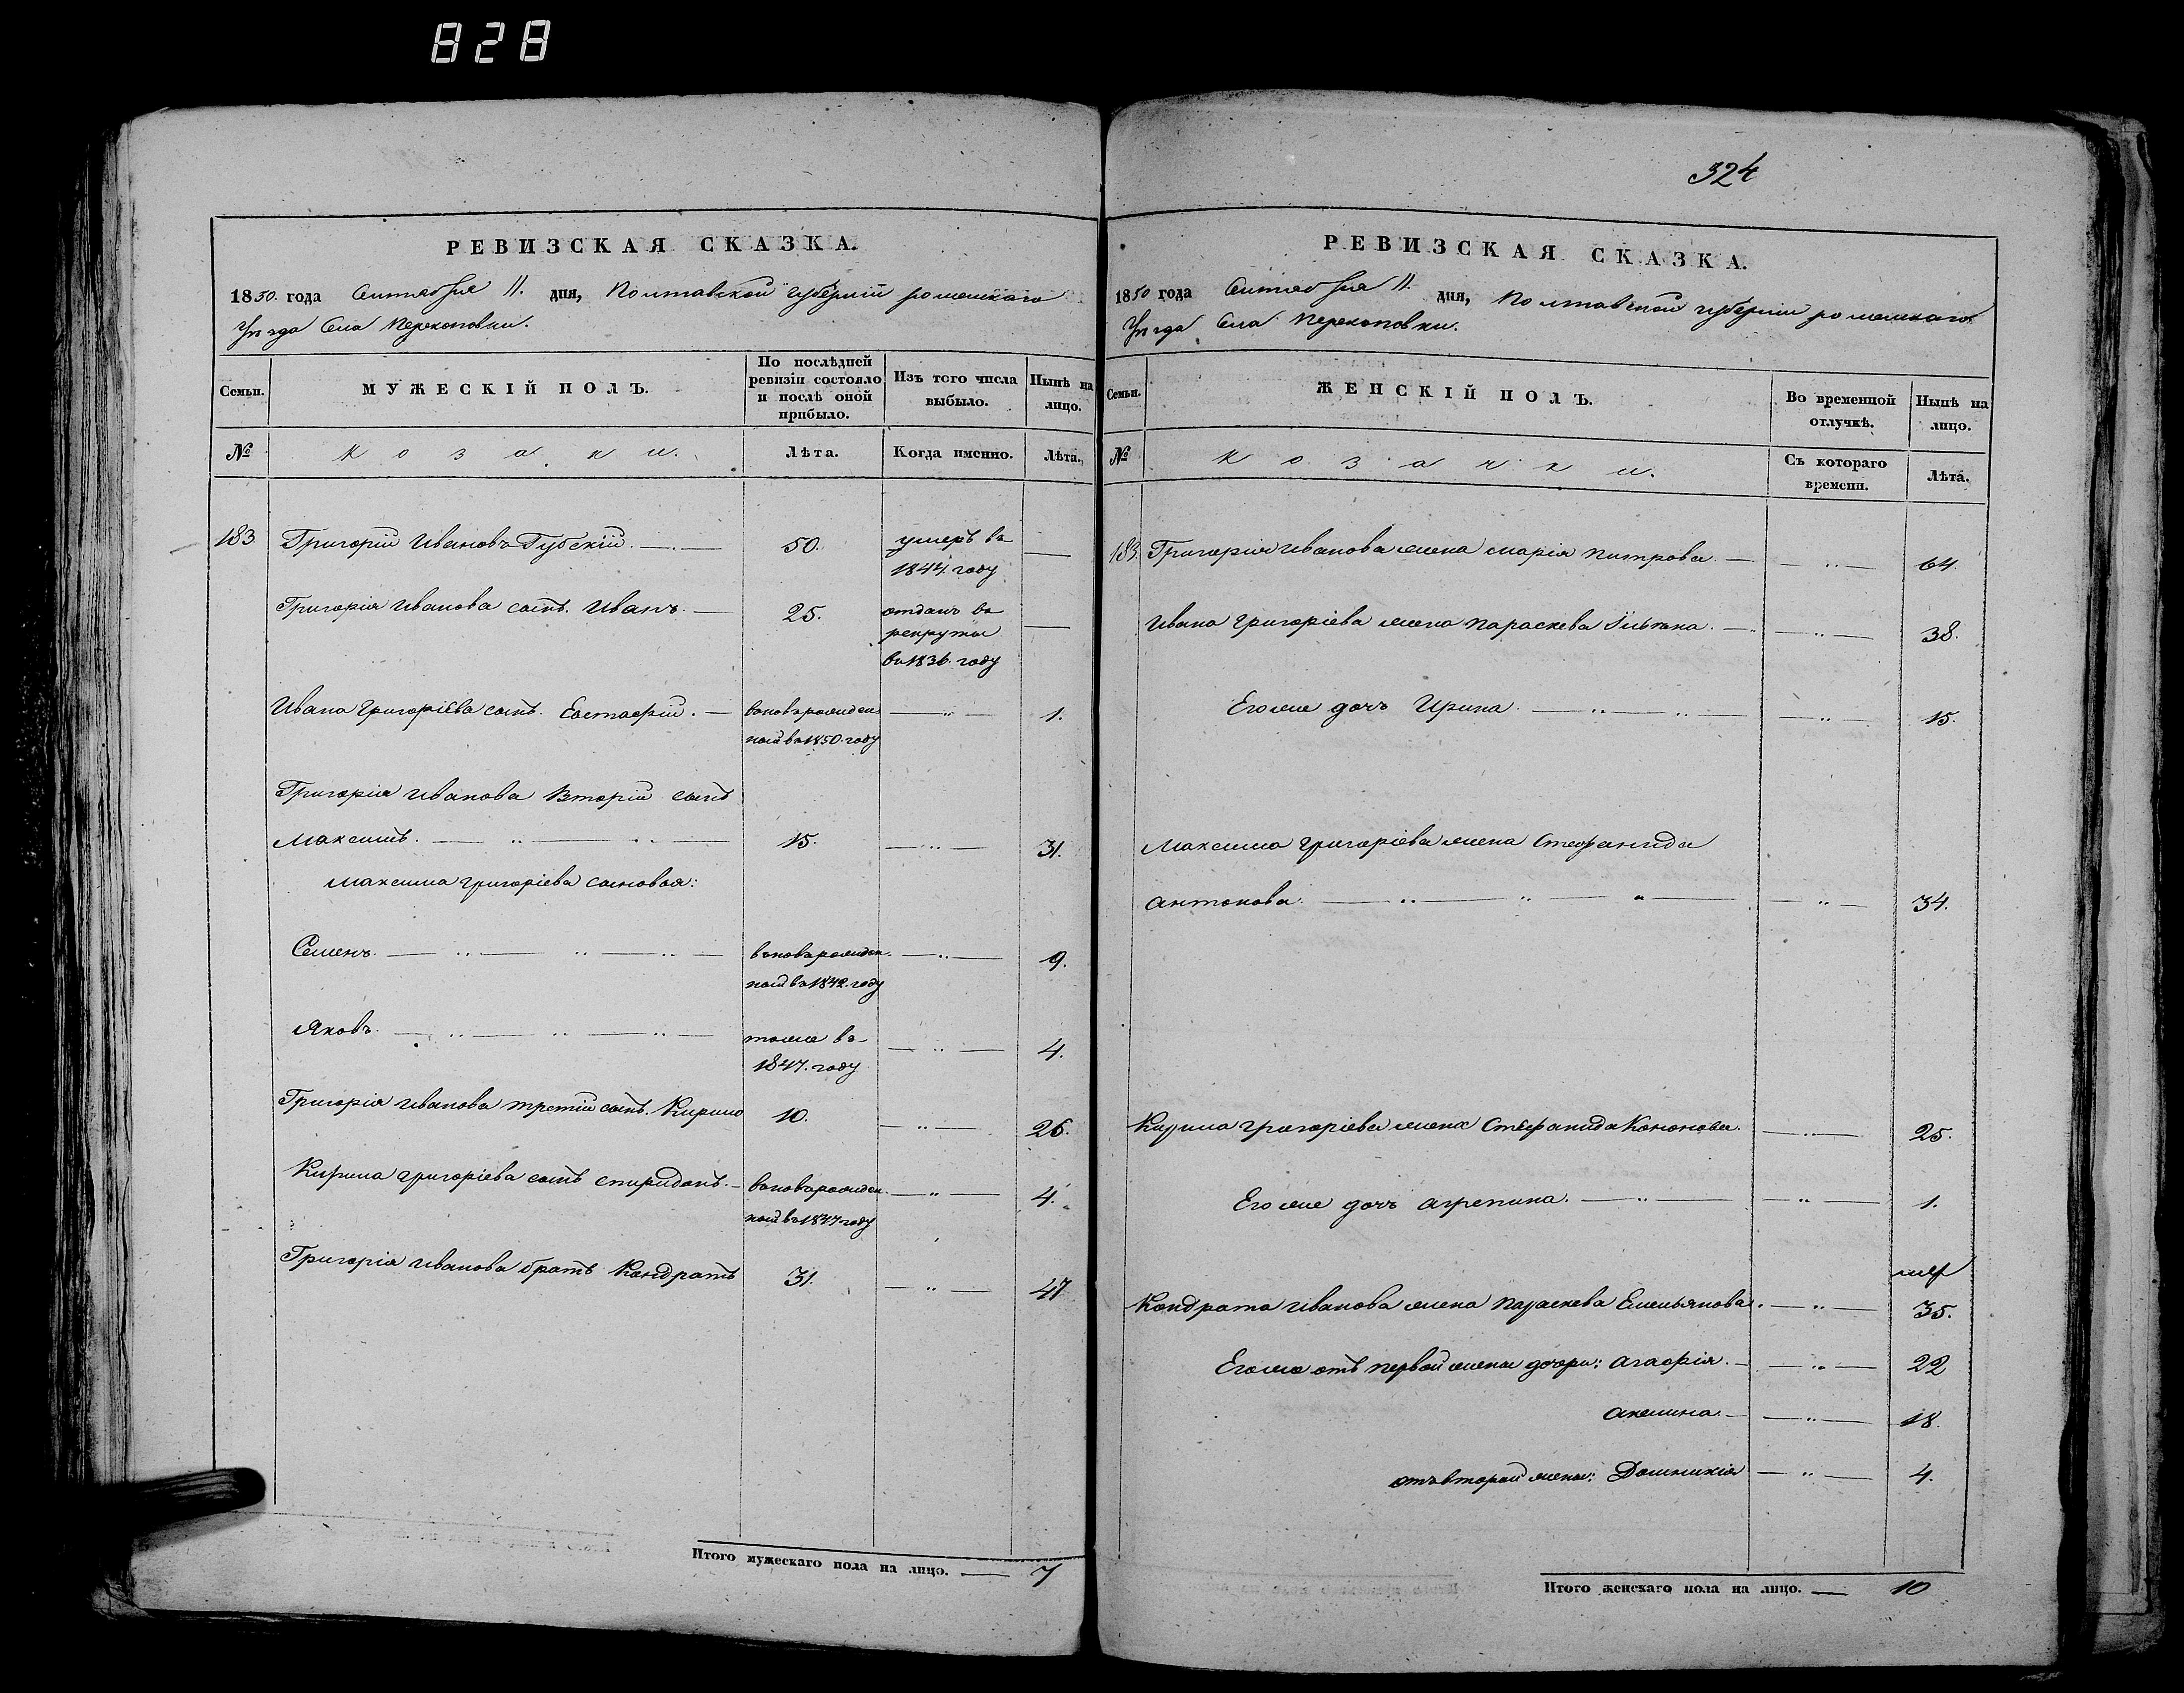 828
РЕВИЗСКАЯ СКАЗКА.
1850. года Сентября 11. дня, Полтавской губерніи роменскаго
Уезда Села Перекоповки.
Семьи.
МУЖЕСКІЙ ПОЛЪ.
По послѣдней ревизіи состояло и послѣ оной прибыло.
Изъ того числа выбыло.
Нынѣ на лицо.
№
козаки.
Лѣта.
Когда именно.
Лѣта.
183 Григорій Ивановъ Губскій. 50. умеръ въ
1844. году
Григорія Иванова сынъ. Иванъ. 25. отданъ въ
рекруты
въ 1836. году
Ивана Григоріева сынъ. Евстафій. вновь рожден 1.
ный въ 1850. году
Григорія Иванова Вторій сынъ
Максимъ. 15. 31.
Максима Григоріева сыновья:
Семенъ. вновь рожден. 9.
ный въ 1842. году
Яковъ. тоже въ 4.
1847. году
Григорія Иванова третій сынъ. Кирило 10. 26.
Кирила Григоріева сынъ Спиридонъ. вновь рожден. 4.
ный въ 1847 году
Григорія Иванова братъ Кондратъ 31. 47
Итого мужескаго пола на лицо. 7
324
РЕВИЗСКАЯ СКАЗКА.
1850 года Сентября 11. дня, Полтавской губерніи роменскаго
Уезда Села Перекоповки.
Семьи.
ЖЕНСКІЙ ПОЛЪ.
Во временной отлучкѣ.
Нынѣ на лицо.
№
козачки.
Съ котораго времени.
Лѣта.
183. Григорія Иванова жена Марія Питрова. 64.
Ивана Григоріева жена Параскева 38.
Его же дочь Ирина. 15.
Максима Григоріева жена Стефанида
Антонова. 34.
Кирила Григоріева жена Стефанида Кононова. 25.
Его же дочь Агрепина. 1.
Кондрата Иванова жена Параскева Емельянова. 35.
Его же отъ первой жены дочери: Агафія. 22
Акилина. 18.
отъ второй жены: Домникія 4.
Итого женскаго пола на лицо. 10